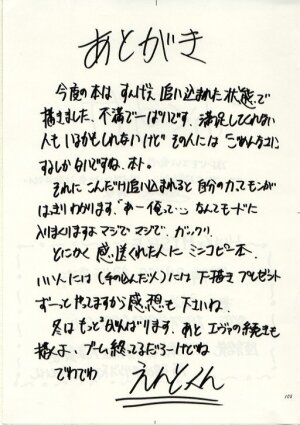 あとがき
今度の本は すんげえ追い込まれた状態で
描きました、不満で一ぱいです、満足してくれない
人もいるかもしれないけど その人には ごめんなさい
するしかないですね、ホト。
それに こんだけ追い込まれると 自分の力てモンが
はっきりわかります、「あー俺って…」なんてモードに
入りまくりますよ マジで マジで、ガックリ、
とにかく 感想送ってくれた人に ミニコピー本、
いい人には(その込んだ人)には 下描き プレゼント
ずーっと やってますから 感想も 下さいね、
冬は もっとがんばります、あと エヴァの続きも
描くよ、ブーム終ってるだろーけどね
でわでわ
えんとくん
102